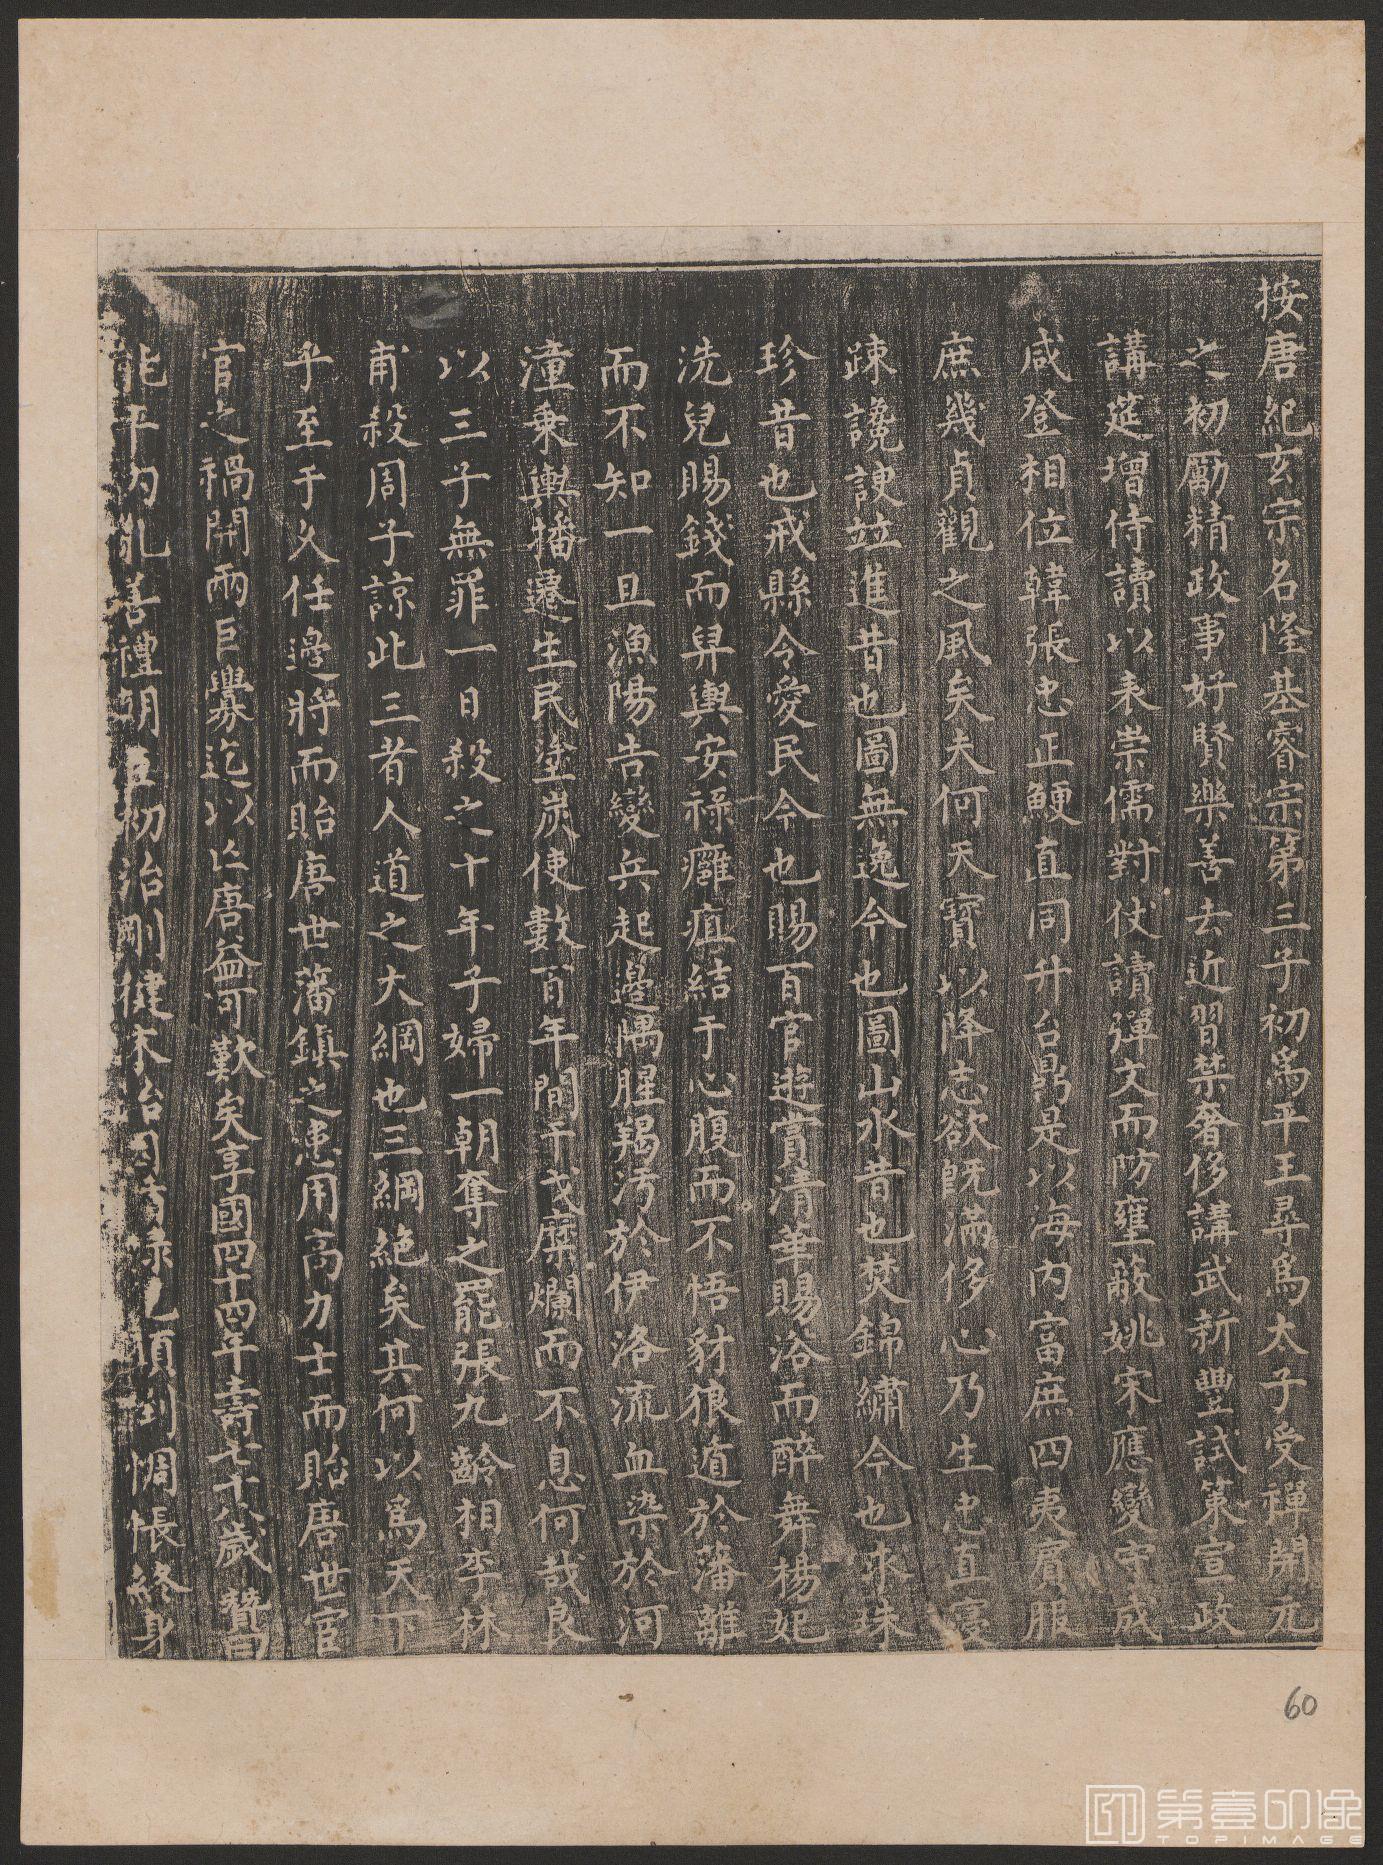 按唐紀玄宗名隆基睿宗第三子初爲平王尋爲太子受禪開元
之初勵精政事好賢樂善去近習禁奢侈講武新豐試策宣政
講筵增侍讀以表崇儒對仗讀彈文而防壅蔽姚宋應變守成
咸登相位韓張忠正鯁直同升台鼎是以海内富庶四夷賓服
庶幾貞觀之風矣夫何天寶以降志欲既滿侈心乃生忠直寖
踈讒諛竝進昔也圖無逸今也圖山水昔也焚錦繡今也求珠
珍昔也戒縣令愛民今也賜百官遊賞清華賜浴而醉舞楊妃
洗兒賜錢而舁輿安祿癰疽結于心腹而不悟豺狼逌於藩離
而不知一旦漁陽告變兵起邊隅腥羯汚於伊洛流血染於河
潼乗輿播遷生民塗炭使數百年間干戈糜爛而不息何哉良
以三子無罪一日殺之十年子婦一朝奪之罷張九齡相李林
甫殺周子諒此三者人道之大綱也三綱絕矣其何以爲天下
乎至于久任邊將而貽唐世藩鎮之患用高力士而貽唐世宦
官之禍開兩巨釁迄以亡唐益可歎矣享國四十四年壽七十八歲 贊曰
能平内亂善禮朋 初治剛健末治 惆悵終身
60
第壹印像
TOPIMAGE